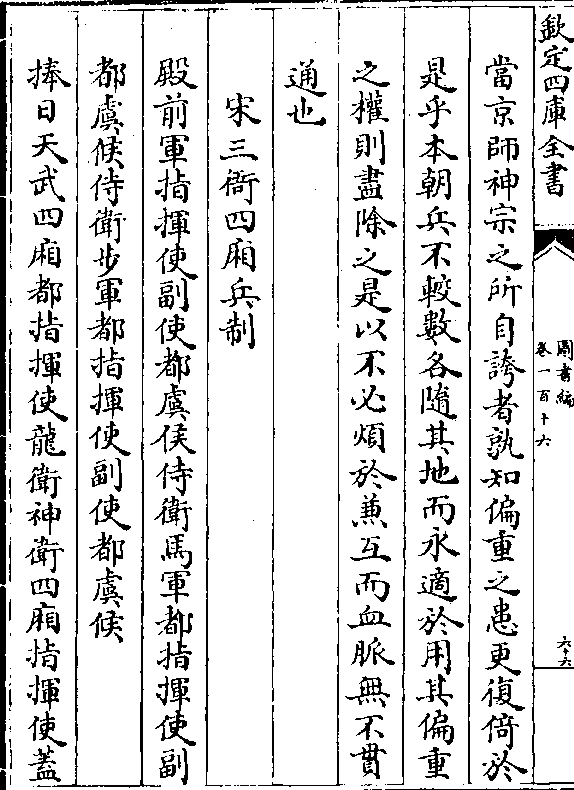 欽定四庫全書
圖書編
卷一百十六
六十六
當京師神宗之所自誇者孰知偏重之患更復倚於
是乎本朝兵不較數各隨其地而永適於用其偏重
之權則盡除之是以不必煩於兼互而血脈無不貫
通也
宋三衙四廂兵制
殿前軍指揮使副使都虞侯侍衛馬軍都指揮使副
都虞候侍衛步軍都指揮使副使都虞候
捧日天武四廂都指揮使龍衛神衛四廂指揮使蓋